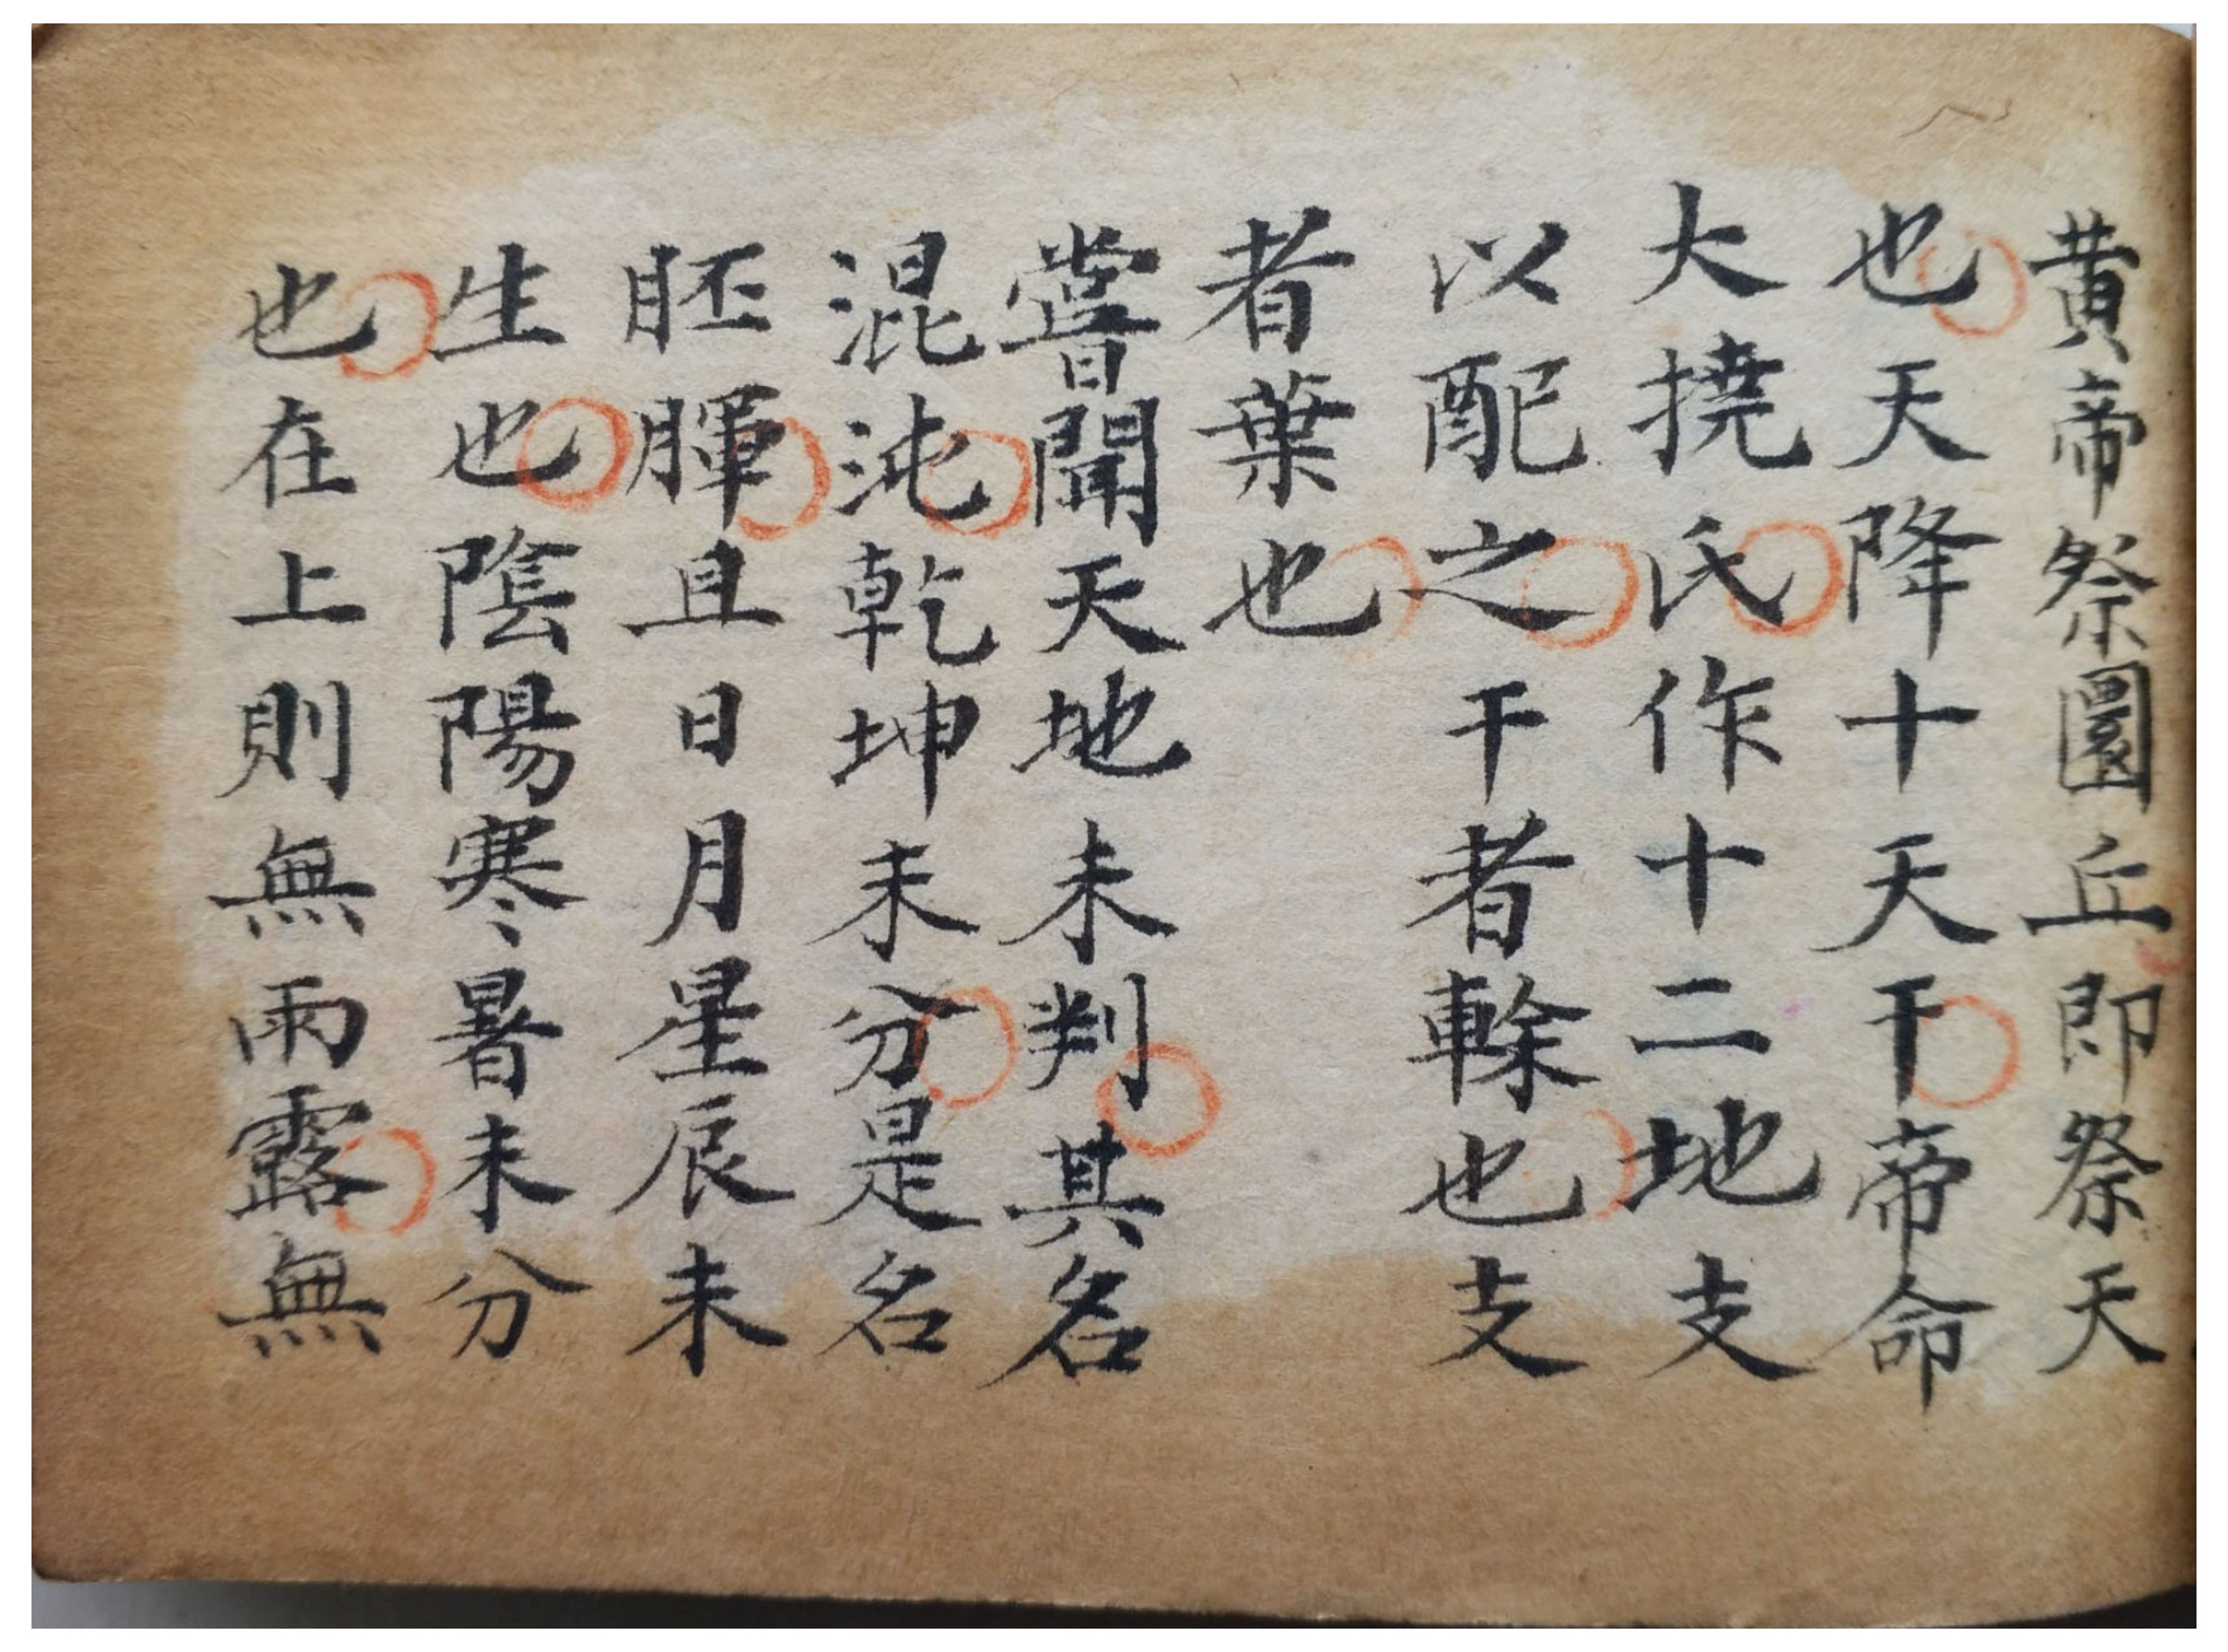 黄帝祭圜丘即祭天
也天降十天干帝命
大撓氏作十二地支
以配之干者榦也支
者葉也
嘗聞天地未判其名
混沌乾坤未分是名
胚腪且日月星辰未
生也陰陽寒暑未分
也在上則無雨露無